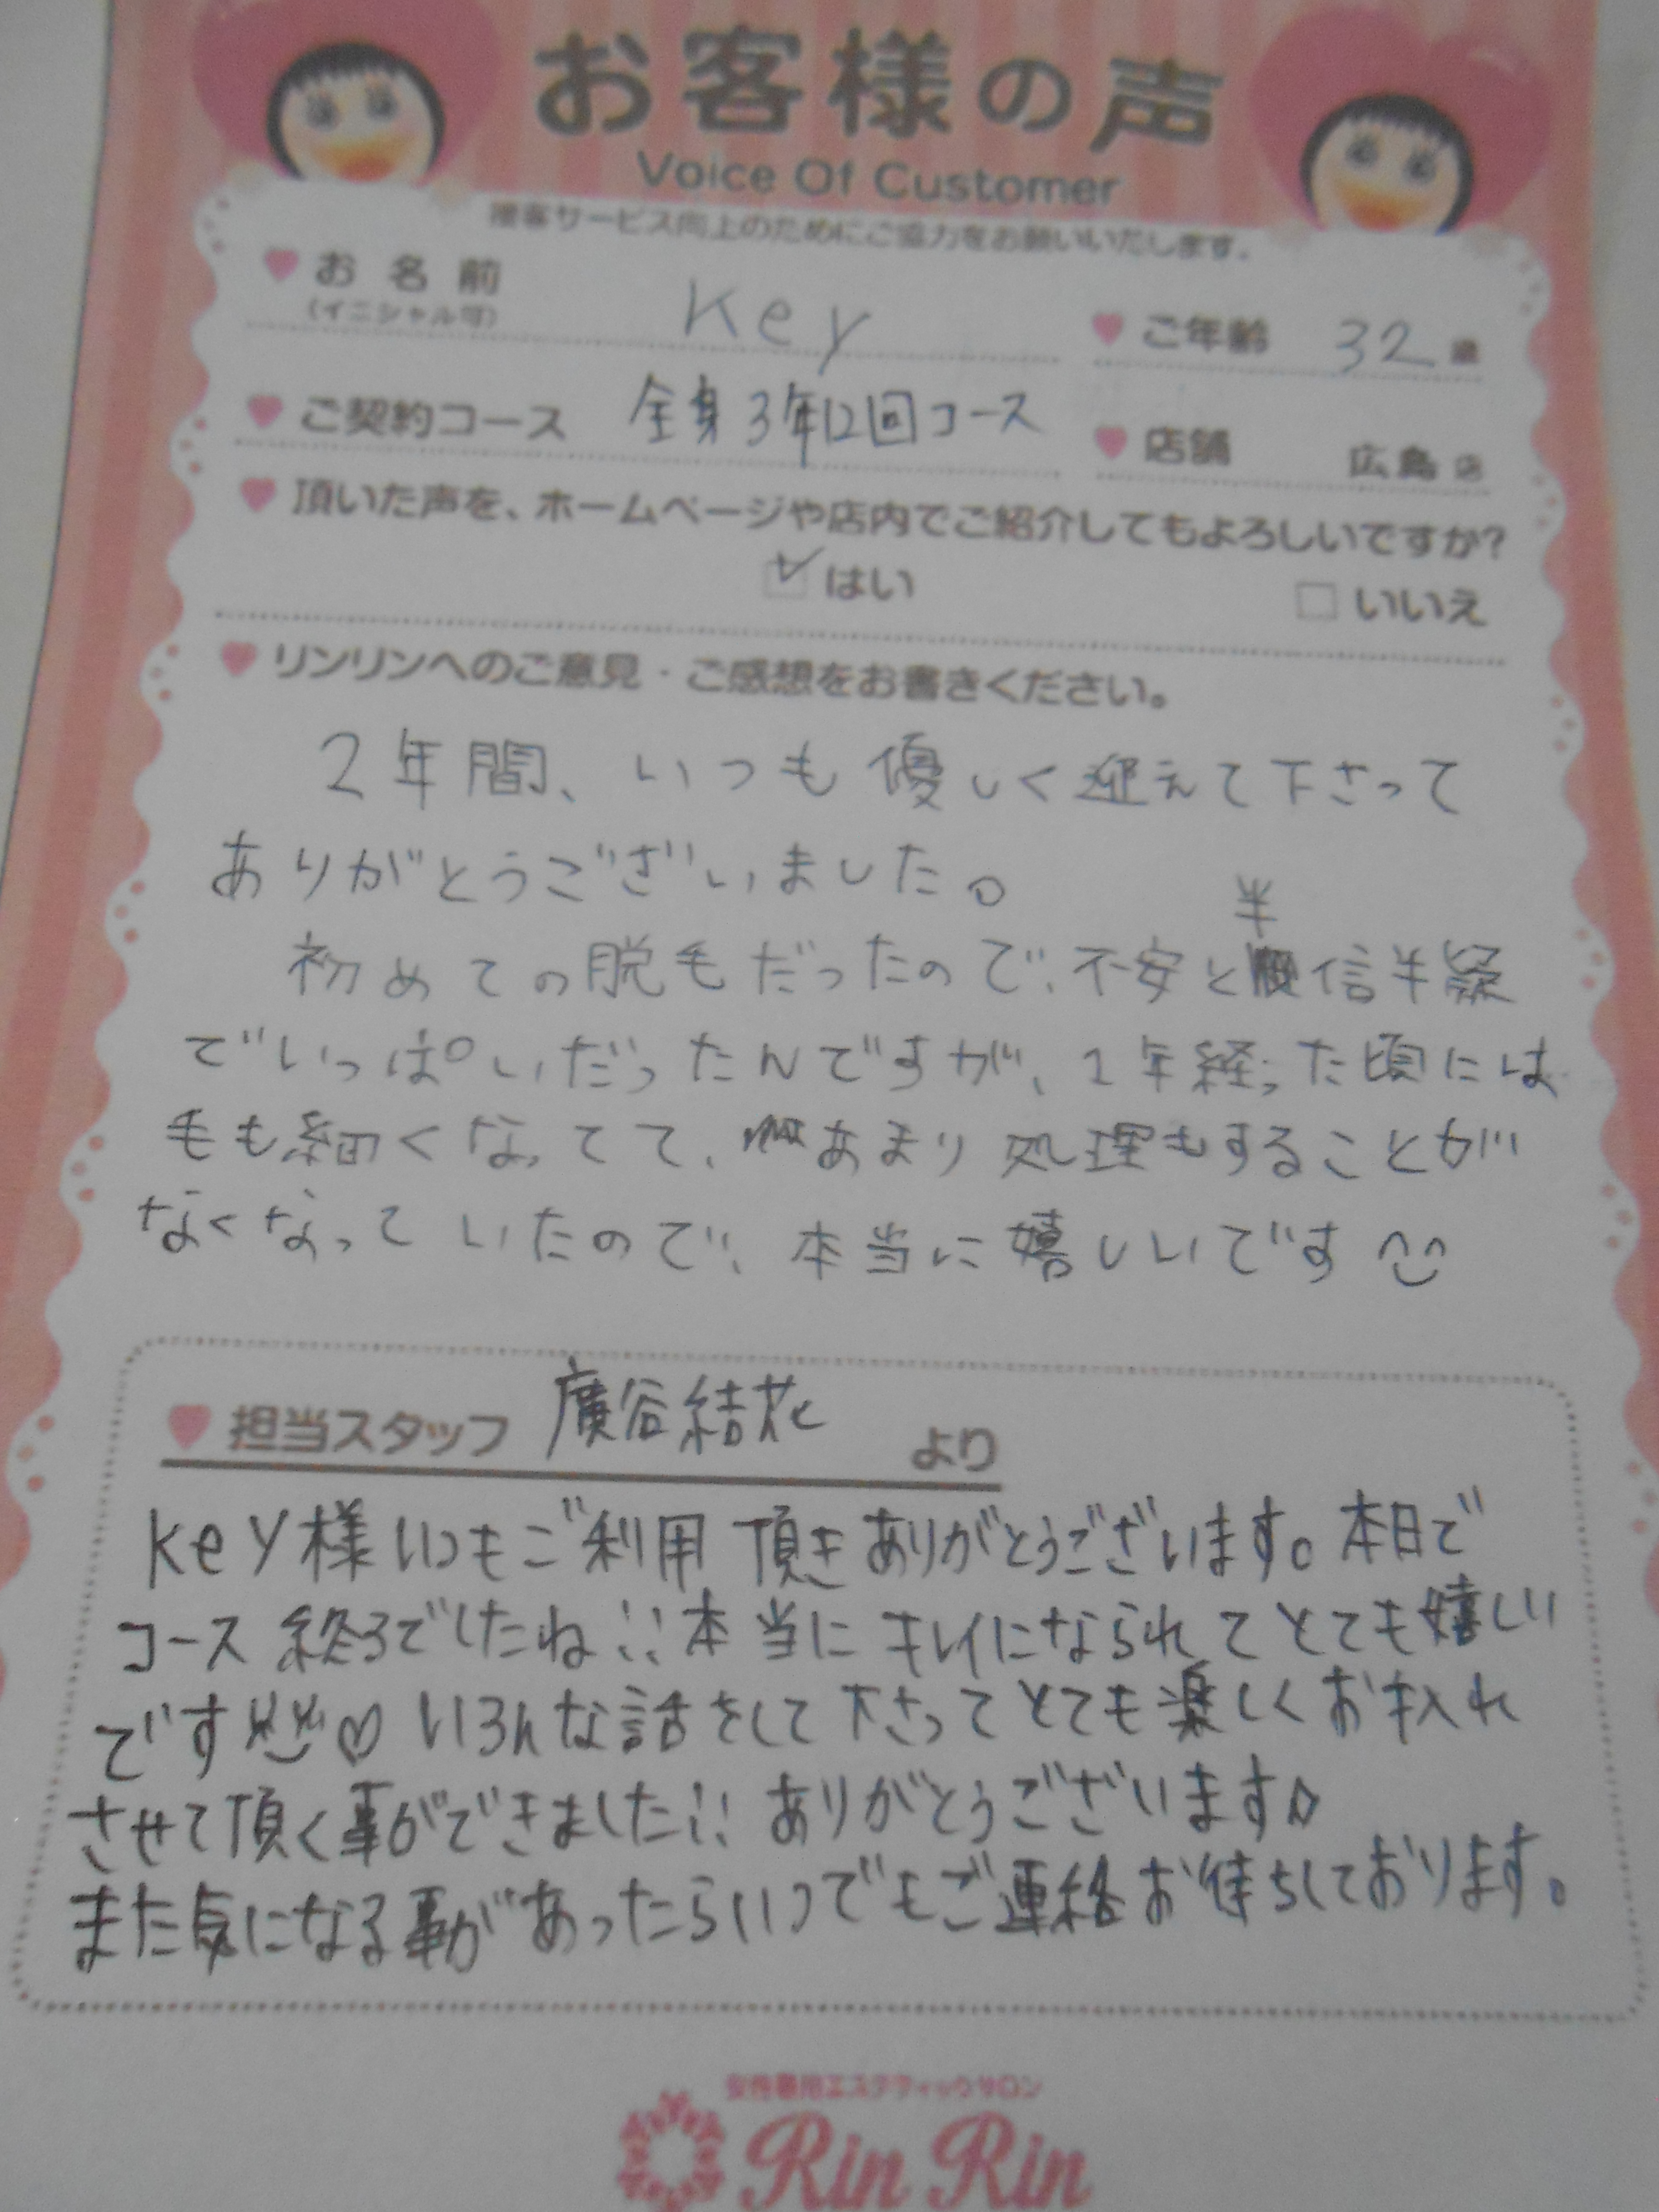 お客様の声
Voice Of Customer
接客サービス向上のためにご協力をお願いいたします。
お名前 Key
(イニシャル可)
ご年齢 32歳
ご契約コース 全身3年12回コース
店舗 広島店
頂いた声を、ホームページや店内でご紹介してもよろしいですか?
はい いいえ
リンリンへのご意見・ご感想をお書きください。
2年間、いつも優しく迎えて下さって
ありがとうございました。
初めての脱毛だったので、不安と半信半疑
でいっぱいだったんですが、1年経った頃には
毛も細くなってて、あまり処理もすることが
なくなっていたので、本当に嬉しいです
担当スタッフ 廣谷結花 より
Key様いつもご利用頂きありがとうございます。本日で
コース終了でしたね!!本当にキレイになられてとても嬉しい
です♡いろんな話をして下さってとても楽しくお手入れ
させて頂く事ができました!!ありがとうございます♪
また気になる事があったらいつでもご連絡お待ちしております。
女性専用エステティックサロン
Rin Rin